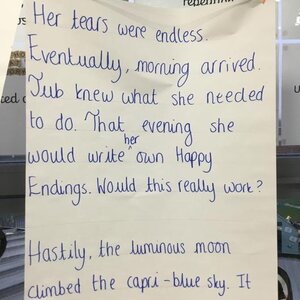 Her tears were endless.
Eventually, morning arrived.
Jub knew what she needed
to do. That evening she
would write her own Happy
Endings. Would this really work?
Hastily, the luminous moon
climbed the capri-blue sky. It